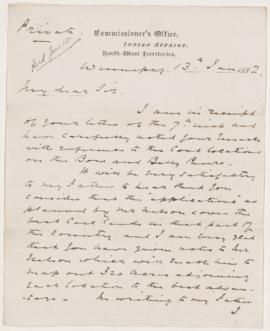 Private
Recd Jan 15
Commissioner's Office,
INDIAN AFFAIRS,
North-West Territories.
Winnipeg 13th Jan 1882
My dear Sir.
I am in receipt
of your letter of the 7th inst. and
have carefully noted your remarks
with reference to the Coal locations
on the Bow and Belly Rivers.
It will be very satisfactory
to my Father to hear that you
consider that the applications as
planned by Mr Nelson cover the
best Coal lands in that part of
the Country, and I am very glad
that you have given notes to Mr
Nelson which will enable him to
map out 320 Acres adjoining
each location to the best advan-
tage. In writing to my Father
I